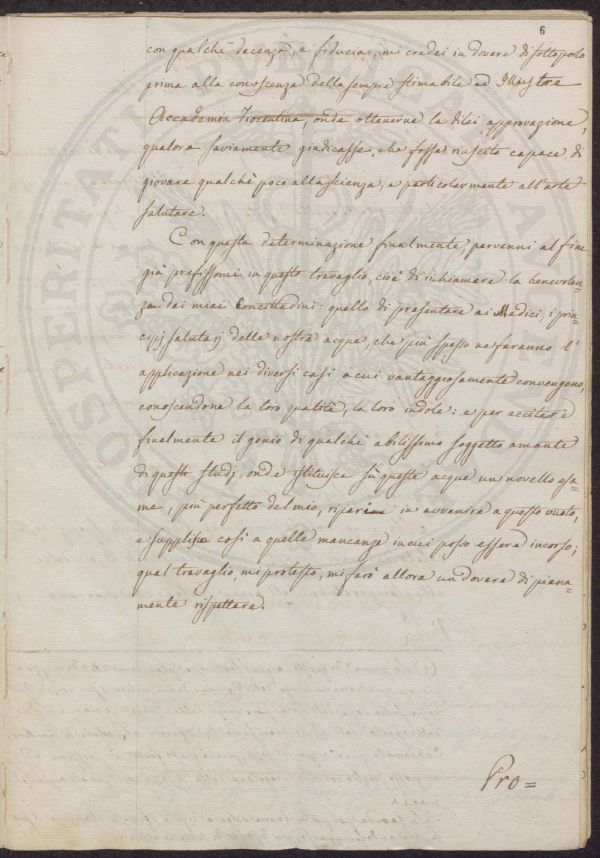 6
con qualche decenza, e fiducia, mi credei in dovere di sottoporlo
prima alla conoscenza della sempre stimabile ed Illustre
Accademia Fiorentina, onde ottenerne la dilei approvazione,
qualora saviamente giudicasse, che fosse riuscito capace di
giovare qualche poco alla scienza, e particolarmente all'arte
salutare.
Con questa determinazione finalmente, pervenni al fine
già prefissomi in questo travaglio, cioè di richiamare la benevolen=
za dei miei Concittadini: quello di presentare ai Medici, i prin=
cipj salutarj delle nostre acque, che più spesso ne faranno l'
applicazione nei diversi casi a cui vantaggiosamente convengono,
conoscendone la loro qualità, la loro indole: e per eccitare
finalmente il genio di qualche abilissimo soggetto amante
di questi studj, onde istituisca sù queste acque un novello esa=
me, più perfetto del mio, ripari in avvenire a questo vuoto,
e supplisca così a quelle mancanze in cui posso essere incorso;
qual travaglio, mi protesto, mi farò allora un dovere di piena=
mente rispettare.
Pro=